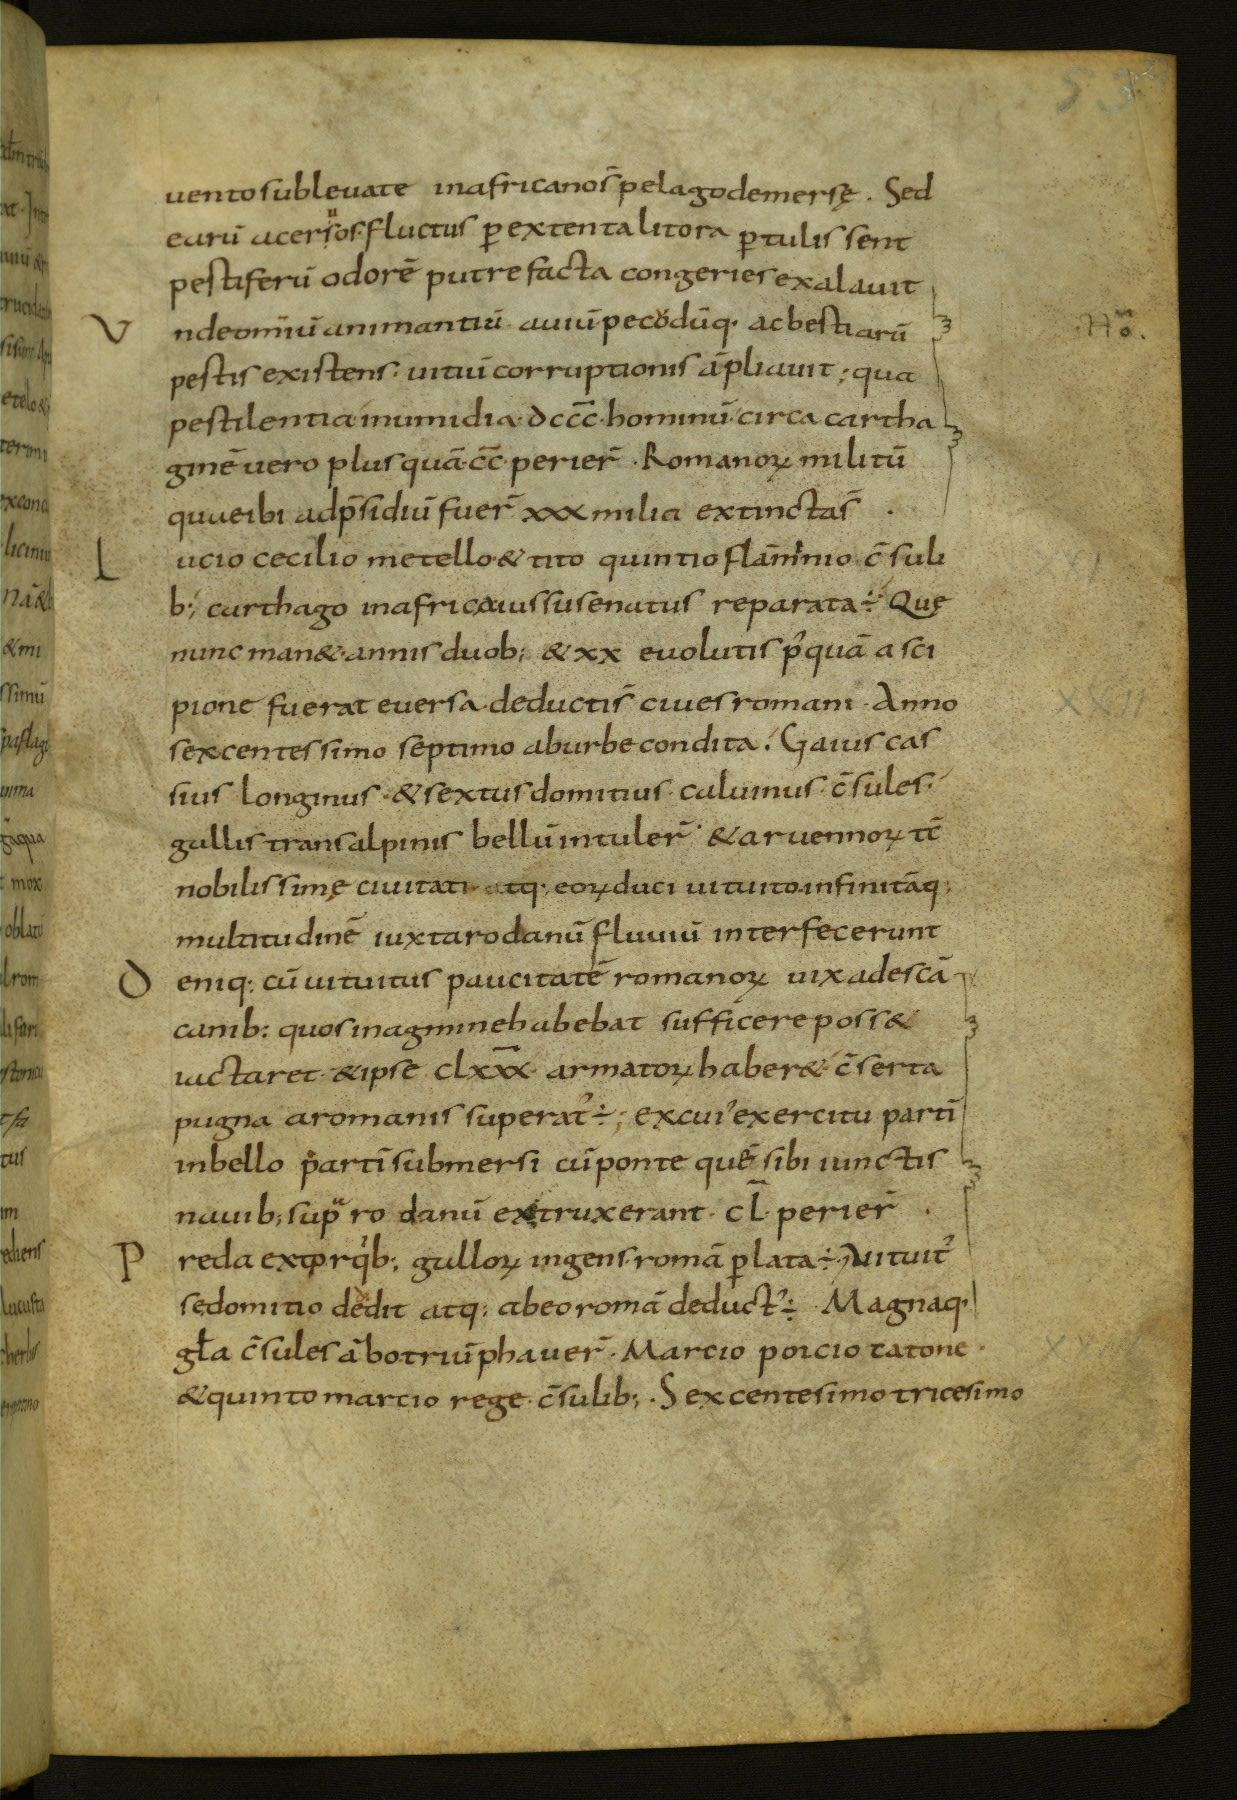 53
uento subleuate in africano s̄ pelago demersę . Sed
earū aceruos fluctus ꝑ extenta litora ꝑtulissent
pestiferū odorē putrefacta congeries exalauit
Vnde omīuı̄ animantiū auiū pecodūq· ac bestiarū N̄o.
pestis existens· uitiū corruptionis āpliauit ; qua
pestilentia in numidia · dccc̄ · hominū · circa cartha
ginē uero plus quā · cc̄ · perier̄ · Romanoꝝ militū
qui ueibi ad p̄sidiū fuer̄ xxx milia extincta s̄ .
Lucio cecilio metello & tito quintio flāminio c̄suli
b; carthago in africa iussu senatus reparata ÷ Quę
nunc man& · annis duob; & xx euolutis p̉quā a sci
pione fuerat euersa · deducti s̄ ciues romani · Anno
sexcentessimo septimo ab urbe condita . Gaius cas
sius longinus · & sextus domitius · caluinus · c̄sules ·
gallis transalpinis bellū intuler̄ · & aruennoꝝ tc̄
nobilissimę ciuitati atq· eoꝝ duci uituito · infinitāq;
multitudinē iuxta rodanū fluuiū interfecerunt
Deniq· cū uituitus paucitatē romanoꝝ uix ad escā
canib: quos in agmine habebat sufficere poss&
iactaret · & ipse clxxx̄ · armatoꝝ haber& · c̄serta
pugna a romanis superat᾽ ÷ ; ex cui᾽ exercitu partī
in bello partī submersi cū ponte quē sibi iunctis
nauib; sup̄ rodanū extruxerant · cl̄ · perier̄ .
Preda ex torqͥb; galloꝝ ingens · romā ꝑlata ÷ · Uituit᾽
se domitio dedit atq; ab eo romā deduct᾽ ÷ · Magnaq·
gl̄a c̄sules ābo triūphauer̄ · Marcio porcio catone ·
& quinto marcio rege · c̄sulib; · Sexcentesimo tricesimo